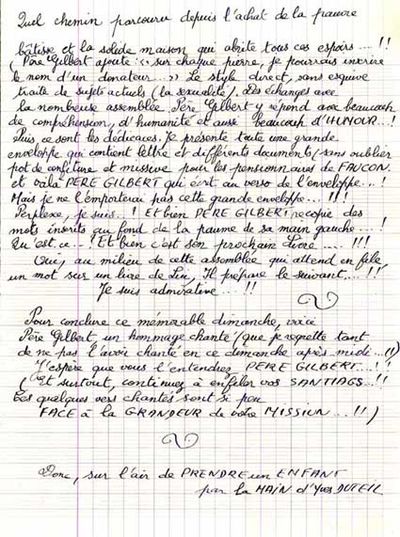 Quel chemin parcouru depuis l'achat de la pauvre
bâtisse et la solide maison qui abrite tous ces espoirs...!!
(Père Gilbert ajoute : "sur chaque pierre, je pourrais inscrire
le nom d'un donateur..." Le style direct, sans esquive
traite de sujets actuels (la sexualité). Des échanges avec
la nombreuse assemblée. Père Gilbert y répond avec beaucoup
de compréhension, d'humanité et aussi beaucoup d'HUMOUR...!
Puis ce sont les dédicaces. Je présente toute une grande
enveloppe qui contient lettre et différents documents (sans oublier
pot de confiture et missive pour les pensionnaires de FAUCON.
et voilà PERE GILBERT qui écrit au verso de l'enveloppe...!
Mais je ne l'emporterai pas cette grande enveloppe...!!!
Perplexe, je suis..! Et bien PERE GILBERT recopie des
mots inscrits au fond de la paume de sa main gauche...!
Qu'est ce...! Et bien c'est son prochain Livre ....!!!
Oui, au milieu de cette assemblée qui attend en file
un mot sur un livre de Lui, Il prépare le suivant...!!
Je suis admirative...!!
Pour conclure ce mémorable dimanche, voici
Père Gilbert un hommage chanté (que je regrette tant
de ne pas l'avoir chanté en ce dimanche après midi...!!)
J'espère que vous l'entendrez PERE GILBERT...!!
(Et surtout, continuez à enfiler vos SANTIAGS..!!
Ces quelques vers chantés sont si peu
FACE à la GRANDEUR de votre MISSION...!!)
Donc, sur l'air de PRENDRE un ENFANT
par la MAIN d'Yves DUTEIL